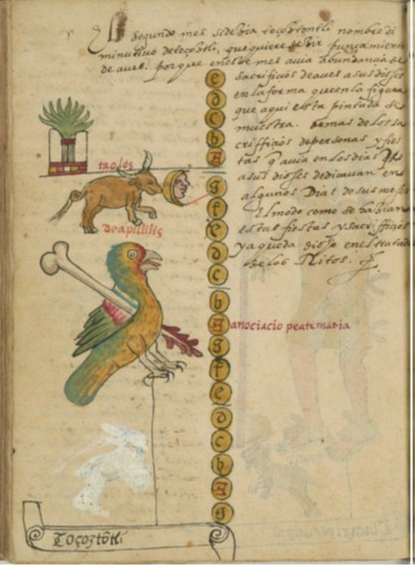 El segundo mes se dezia toçoztontli nombre di
minutivo de toçoztli, que quiere dezir punçamiento
de aves. porque en este mes avia abundançia de
sacrifiçios de aves a sus dioses
en la forma que en la figura
que aqui esta pintada se
muestra. demas de los sa
crifficios de personas y fies
tas q̃ avia en los dias
a sus dioses dedicavan en
algunos Dias de sus meses
El modo como se hazian
estas fiestas y sacriffiçios
ya queda dicho en el tratado
de los Ritos.
e
d
c
b
A
g
f
e
d
c
b
A
g
f
e
d
c
b
A
g
de aprilis
anociacio
Toçoztõtli